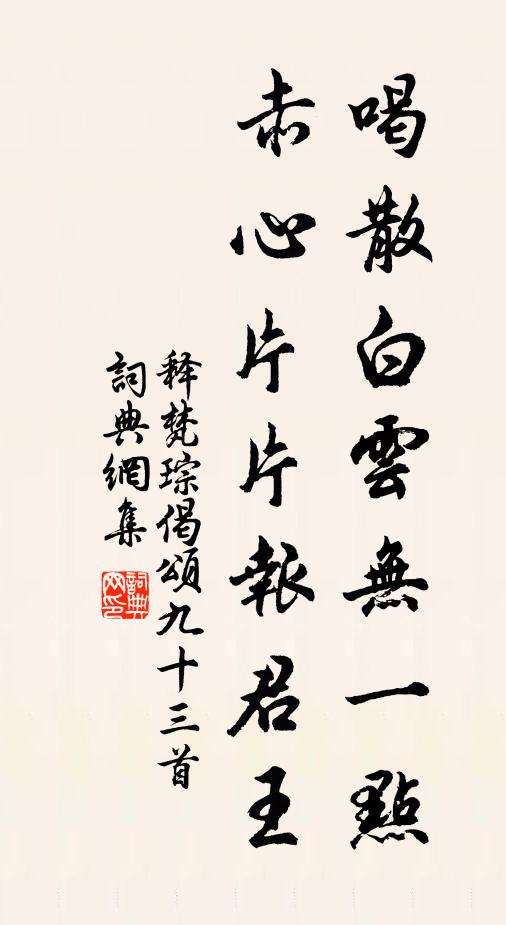 喝散白雲無一點
赤心片片報君王
释梵琮偈頌九十三首
詞典網集
詞典网印